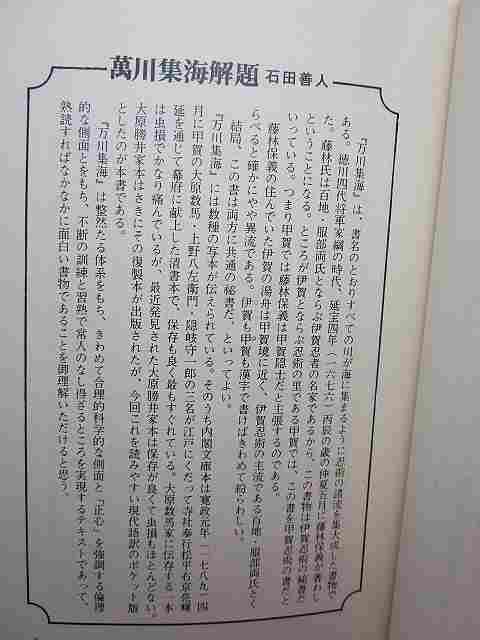 萬川集海解題 石田善人
『万川集海』は、書名のとおりすべての川が海に集まるように忍術の諸流を集大成した書物で
ある。徳川四代将軍家綱の時代、延宝四年(一六七六)丙辰の歳の仲夏五月に藤林保義が著わし
た。藤林氏は百地・服部両氏とならぶ伊賀忍者の名家であるから、この書物は伊賀忍術の秘書だ
ということになる。ところが伊賀とならぶ忍術の里である甲賀では、この書を甲賀忍術の書だと
いっている。つまり甲賀では藤林保義は甲賀隠士だと主張するのである。
藤林保義の住んでいた伊賀の湯舟は甲賀境に近く、伊賀忍術の主流である百地・服部両氏とく
らべると確かにやや異流である。伊賀も甲賀も漢字で書けばきわめて紛らわしい。
結局、この書は両方に共通の秘書だ、といってよい。
『万川集海』には数種の写本が伝えられている。そのうち内閣文庫本は寛政元年(一七八九)四
月に甲賀の大原数馬・上野八左衛門・隠岐守一郎の三名が江戸にくだって寺社奉行松平右京亮輝
延を通じて幕府に献上した清書本で、保存も良く最もすぐれている。大原数馬家に伝存する一本
は虫損でかなり痛んでいるが、最近発見された大原勝井家本は保存が良くて虫損もほとんどない。
大原勝井家本はさきにその復製本が出版されたが、今回これを読みやすい現代語訳のポケット版
としたのが本書である。
『万川集海』は整然たる体系をもち、きわめて合理的科学的な側面と「正心」を強調する倫理
的な側面とをもち、不断の訓練と習熟で常人のなし得ざるところを実現するテキストであって、
熟読すればなかなかに面白い書物であることを御理解いただけると思う。